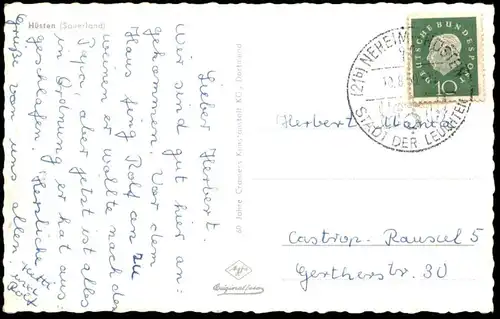 Hüsten (Sauerland)
Lieber Herbert.
Wir sind gut hier an-
gekommen. Vor dem
Haus fing Rolf an zu
weinen er wollte nach dem
Papa, aber jetzt ist alles
in Ordnung er hat aus-
geschlafen. Herzliche
Grüße von uns allen.
Rolf
60 Jahre Cramers Kunstanstalt KG., Dortmund
DEUTSCHE BUNDESPOST
10
(21b) NEHEIM-HÜSTEN
STADT DER LEUCHTEN
Herbert
Castrop-Rauxel 5
Gertherstr. 30